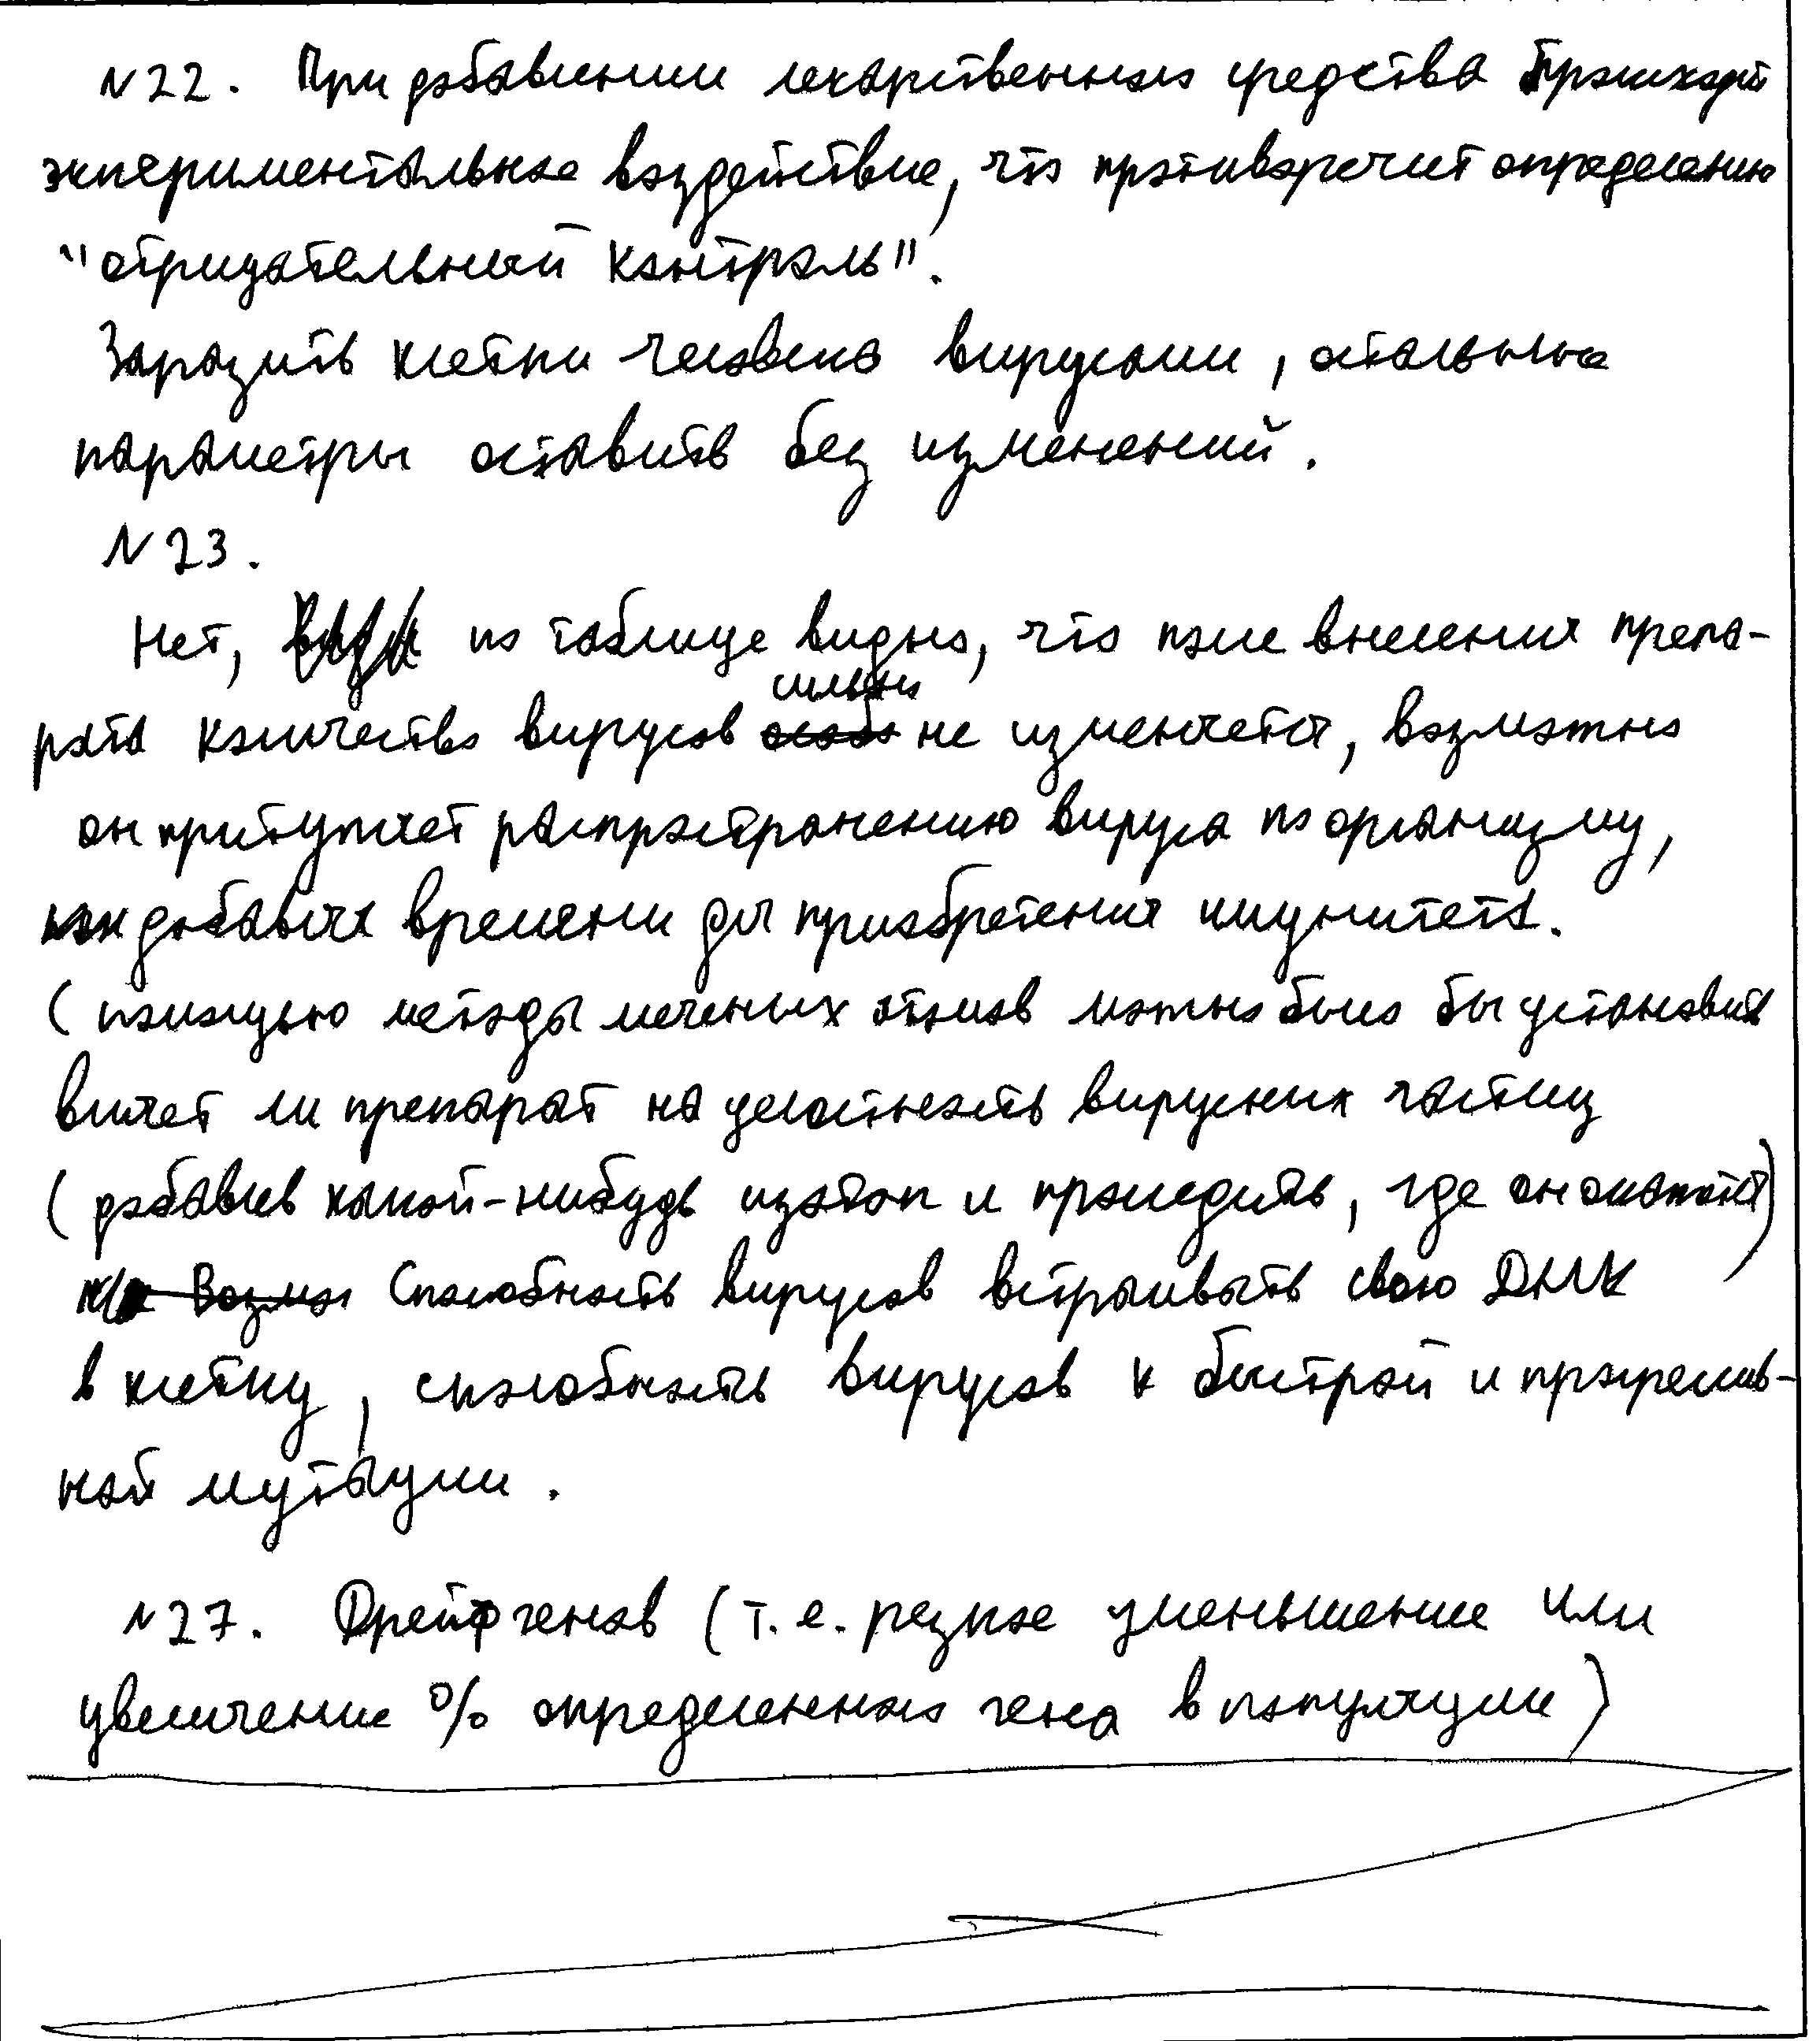 N22. При добавлении лекарственного средства происходит
экпериментальное воздействие, что противоречит определению
"отрицательный контроль".
Заразить клетки человека вирусами, остальные
параметры оставить без изменений.
N23.
Нет, по таблице видно, что после внесения препа-
рата количество вирусов сильно не изменяется, возможно
он притупляет распространению вируса по организму,
добавляя времени для приобретения имунитета.
(помощью методы меченых атомов можно было бы установить
влияет ли препарат на целостность вирусных частиц
(добавив какой-нибудь изотоп и проследить, где он окажется)
Способность вирусов встраивать свою ДНК
в клетку, способность вирусов к быстрой и прогрессив-
ной мутации.
N27. Дрейф генов (т.е. резкое уменьшение или
увеличение % определенного гена в популяции)